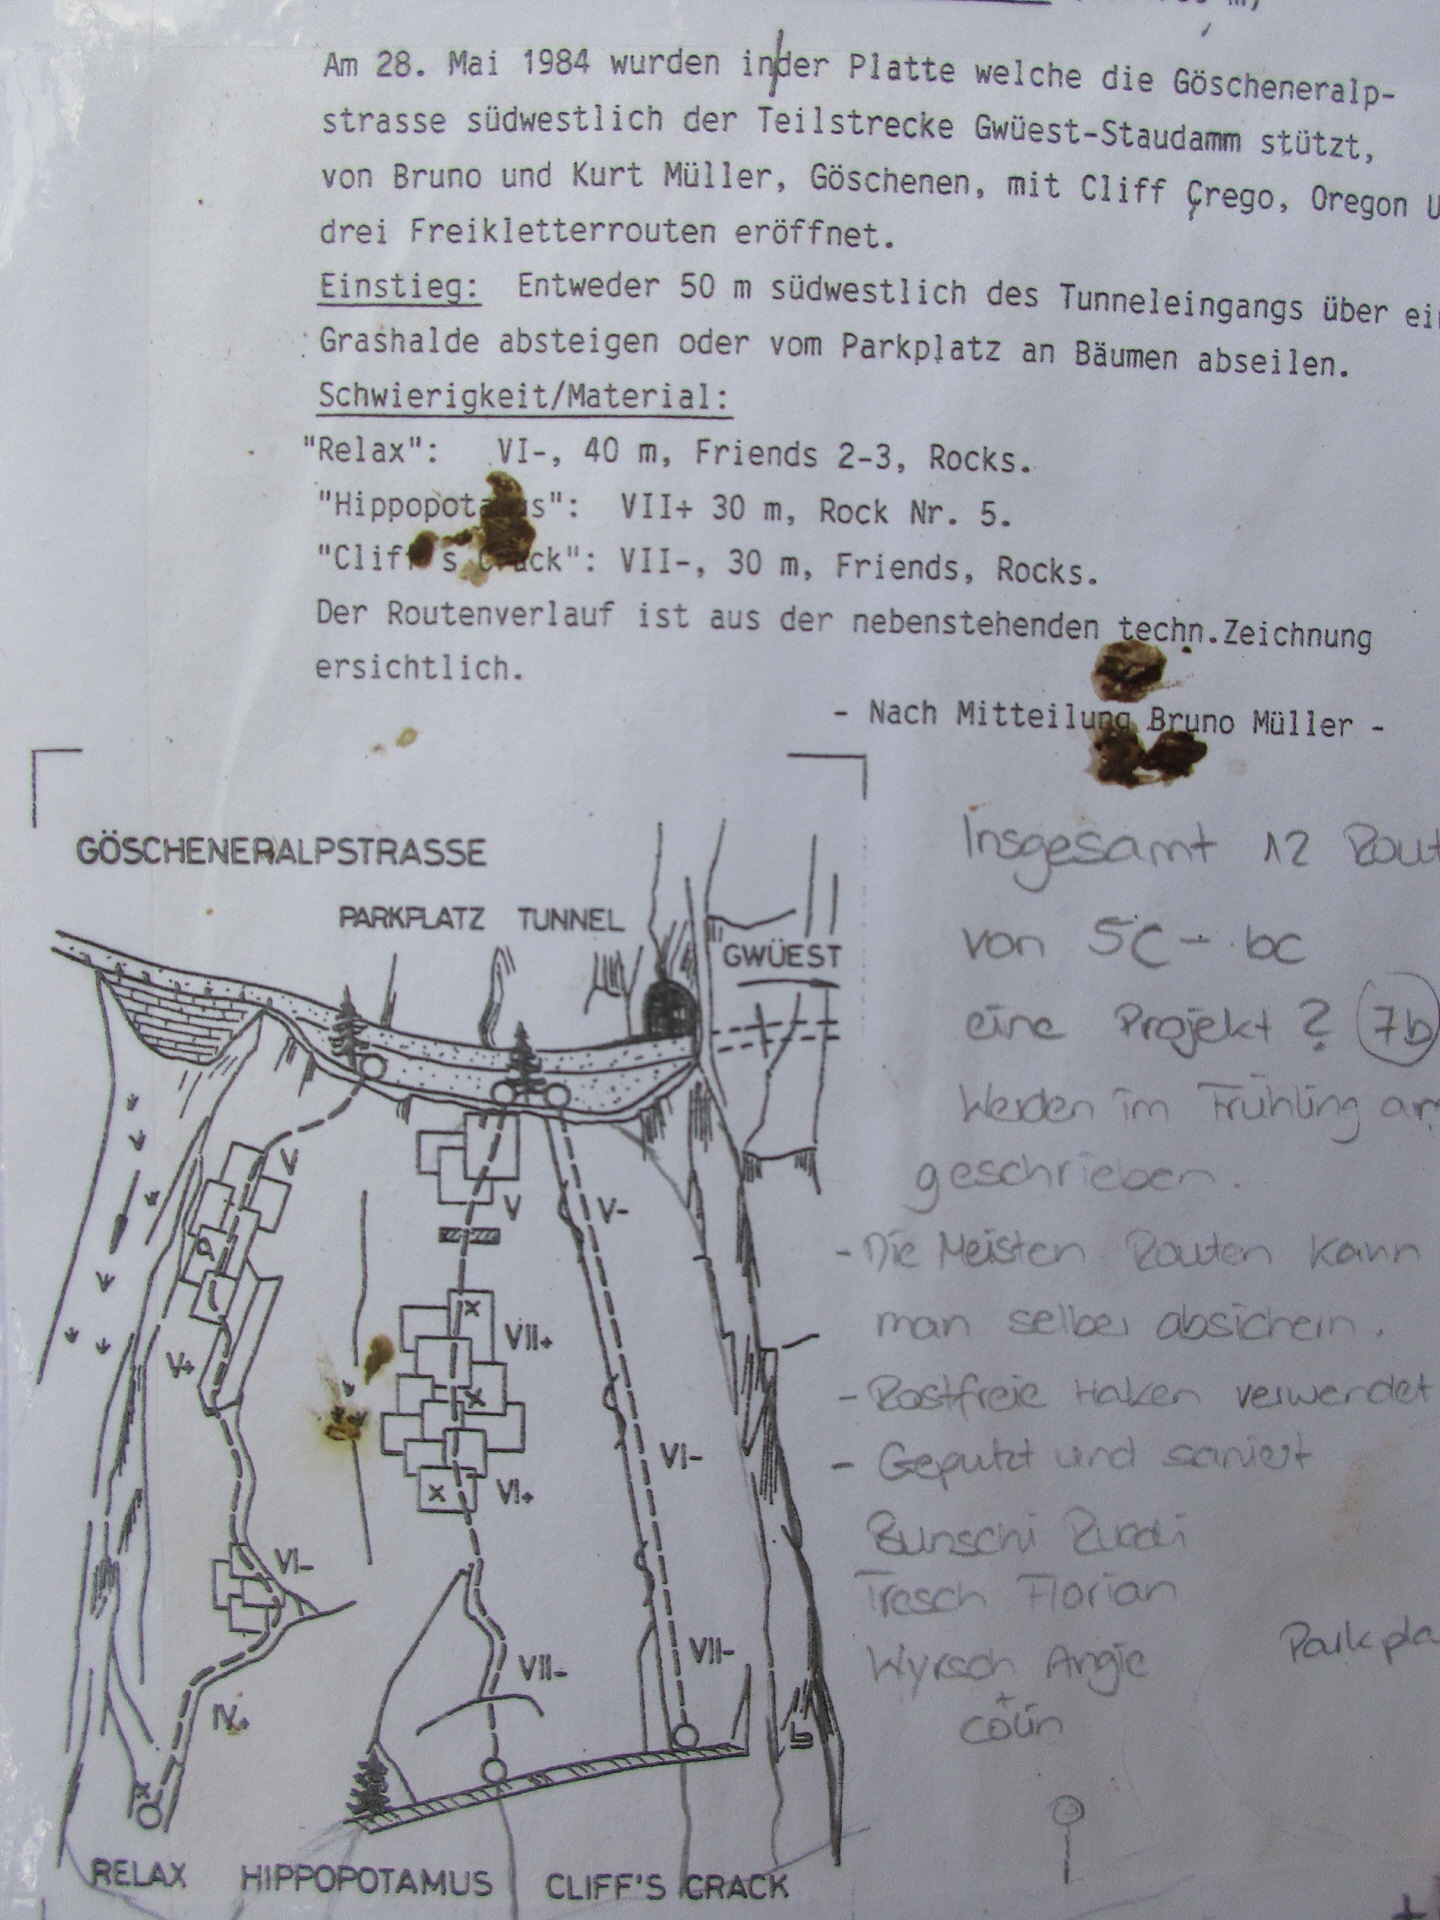 Am 28. Mai 1984 wurden in der Platte welche die Göscheneralp-
strasse südwestlich der Teilstrecke Gwüest-Staudamm stützt,
von Bruno und Kurt Müller, Göschenen, mit Cliff Crego, Oregon U
drei Freikletterrouten eröffnet.
Einstieg: Entweder 50 m südwestlich des Tunneleingangs über ein
Grashalde absteigen oder vom Parkplatz an Bäumen abseilen.
Schwierigkeit/Material:
"Relax": VI-, 40 m, Friends 2-3, Rocks.
"Hippopotamus": VII+ 30 m, Rock Nr. 5.
"Cliff's Crack": VII-, 30 m, Friends, Rocks.
Der Routenverlauf ist aus der nebenstehenden techn.Zeichnung
ersichtlich.
- Nach Mitteilung Bruno Müller -
GÖSCHENERALPSTRASSE
PARKPLATZ TUNNEL
GWÜEST
V
V
V-
VII+
V+
VI-
VI+
VI-
VII-
VII-
IV+
RELAX HIPPOPOTAMUS CLIFF'S CRACK
Insgesamt 12 Rout
von 5c - 6c
eine Projekt ? 7b
Werden im Frühling an
geschrieben.
- Die Meisten Routen kann
man selber absichern.
- Rostfreie Haken verwendet
- Geputzt und saniert
Bunschi Ruedi
Tresch Florian
Wyrsch Angie
+
Colin
Parkpla